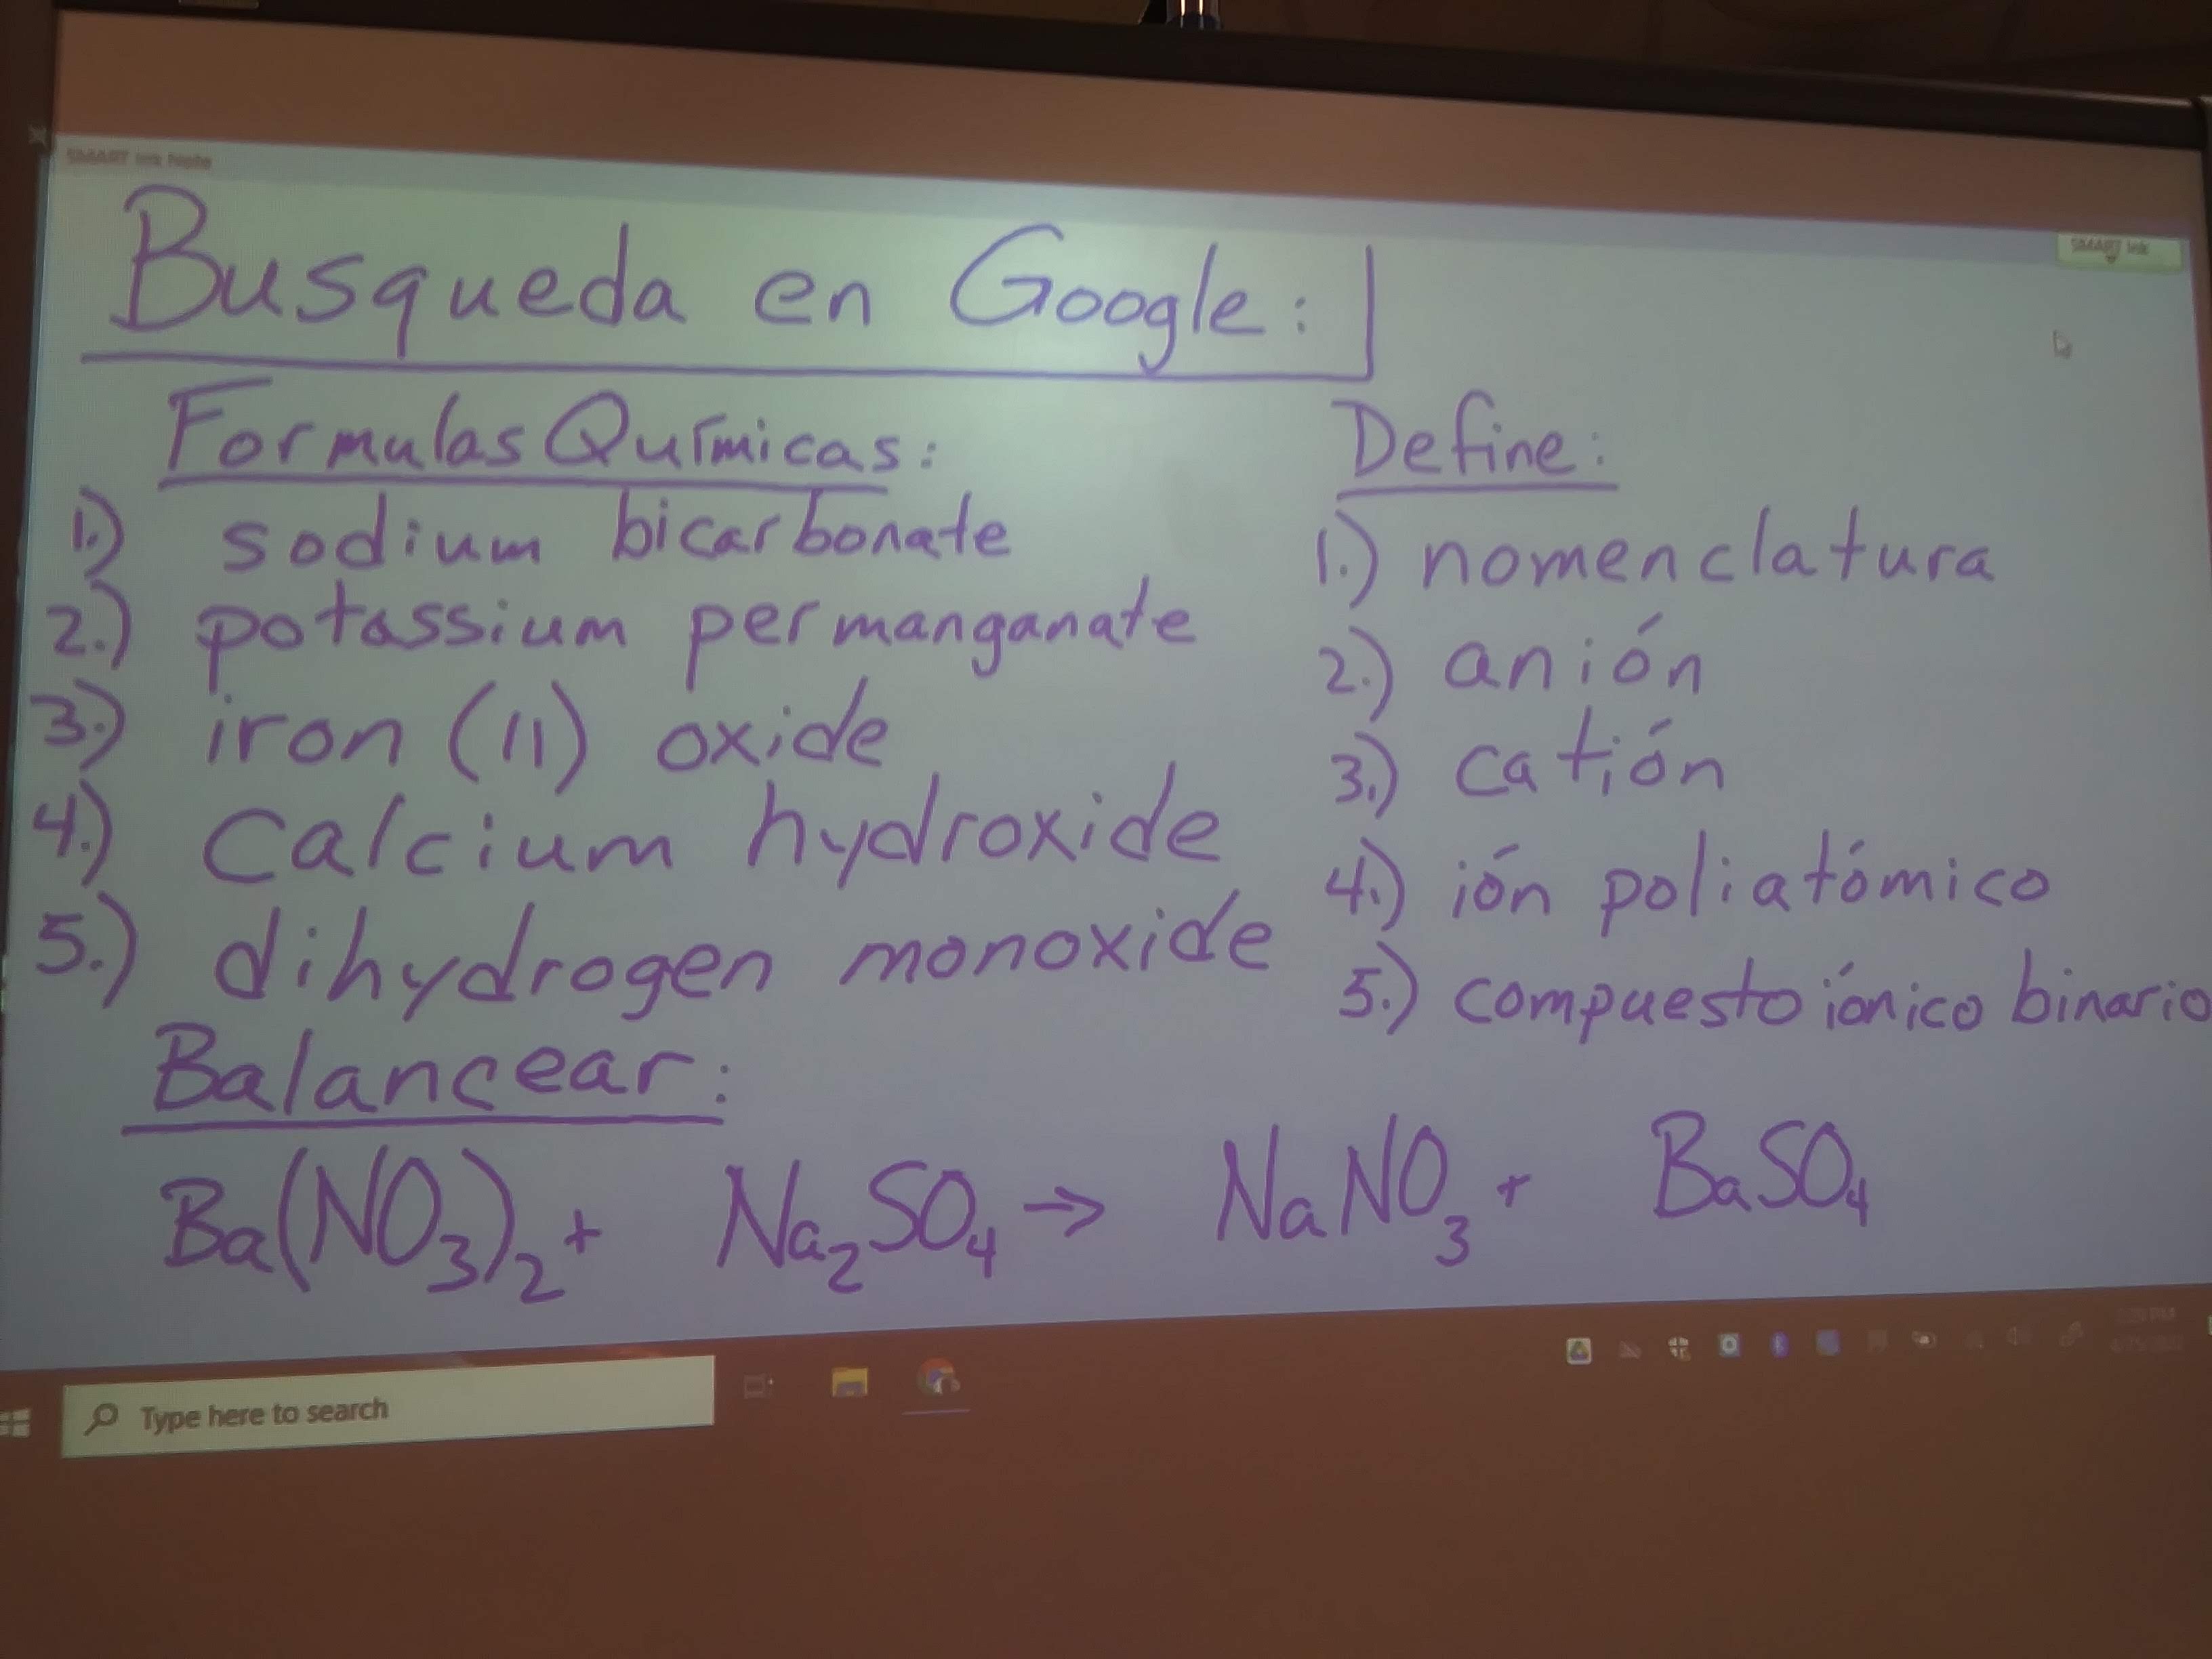 SMART Ink Note
SMART Ink
Busqueda en Google:
Formulas Químicas:
1.) sodium bicarbonate
2.) potassium permanganate
3.) iron (II) oxide
4.) Calcium hydroxide
5.) dihydrogen monoxide
Define:
1.) nomenclatura
2.) anión
3.) catión
4.) ión poliatómico
5.) compuesto iónico binario
Balancear:
Ba(NO₃)₂ + Na₂SO₄ → NaNO₃ + BaSO₄
Type here to search